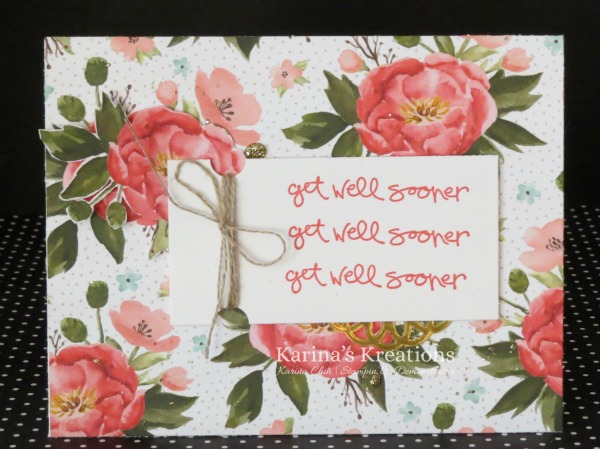 get well sooner
get well sooner
get well sooner
Karina's Kreations
Karina Chin | Stampin' Up Demonstrator